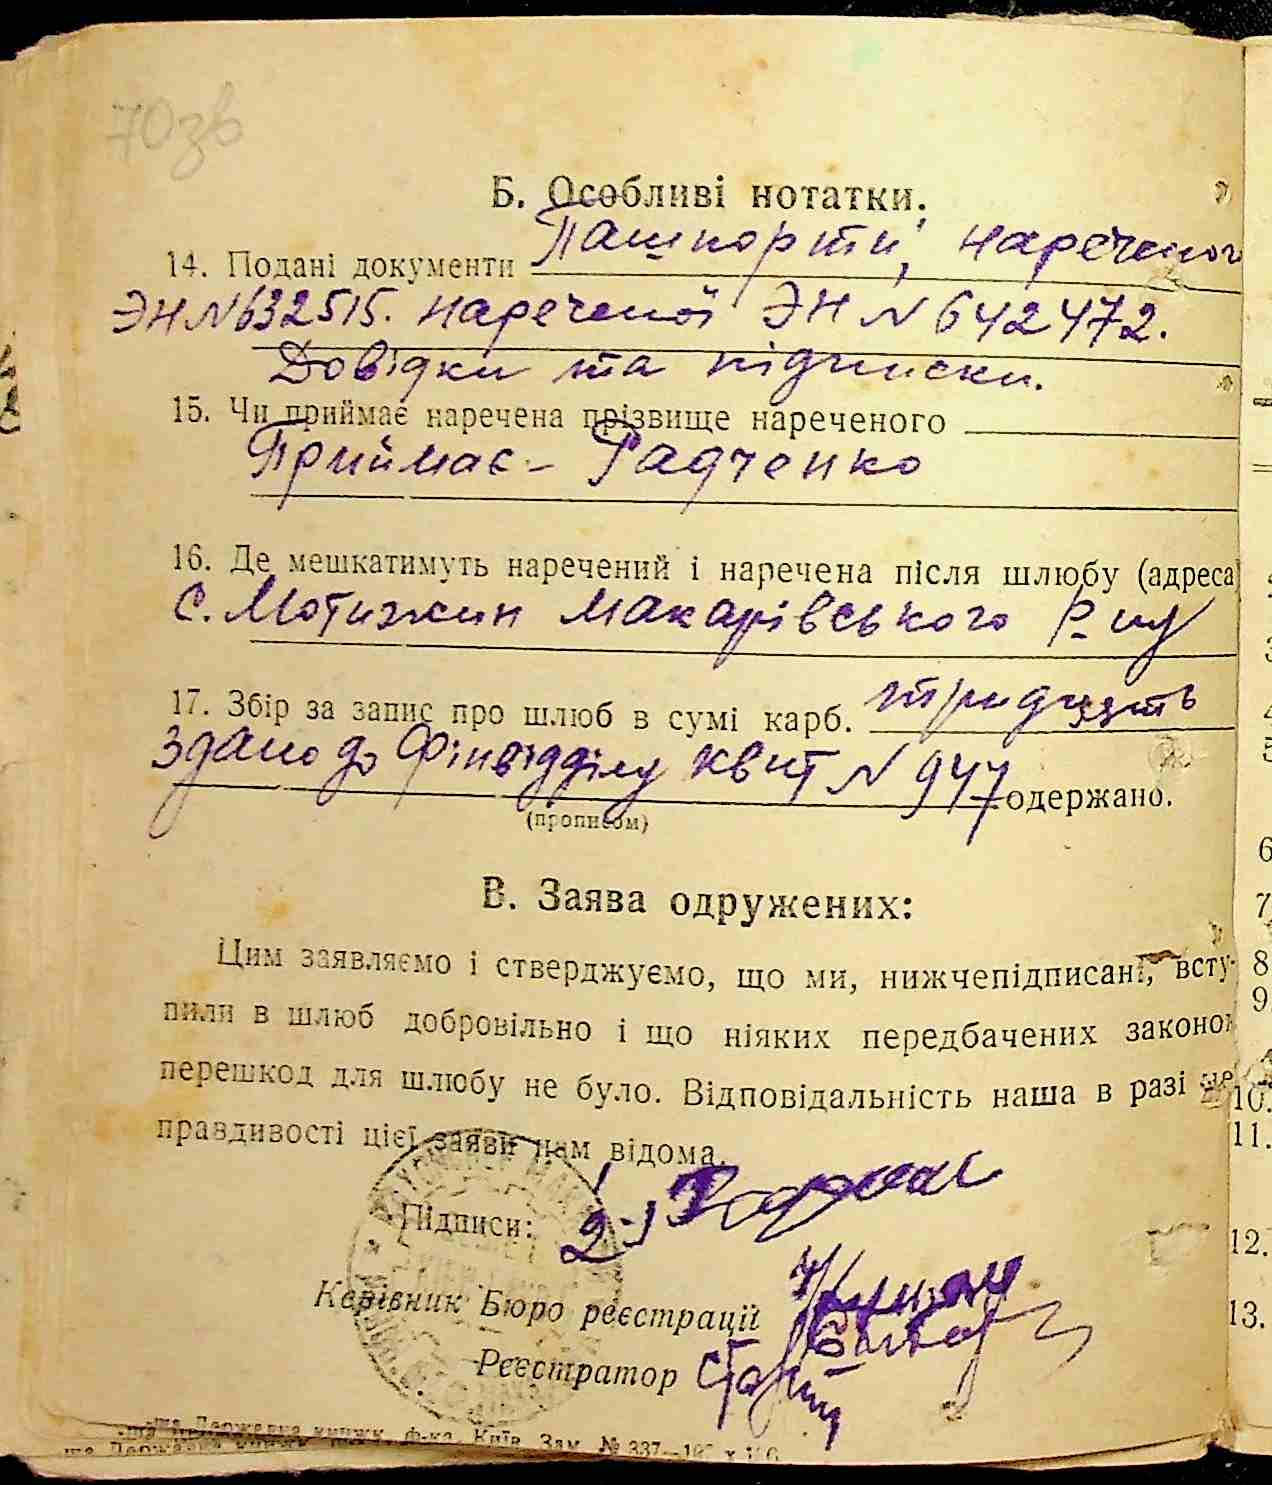 70зв
Б. Особливі нотатки.
14. Подані документи Пашпорти, нареченого
ЭН №632515. нареченої ЭН № 642472.
Довідки та підписки.
15. Чи приймає наречена прізвище нареченого
Приймає - Радченко
16. Де мешкатимуть наречений і наречена після шлюбу (адреса)
с. Мотижин Макарівського р-ну
17. Збір за запис про шлюб в сумі карб. тридцять
Здано до Фінвідділу квит № 947 одержано.
(прописом)
В. Заява одружених:
Цим заявляємо і стверджуємо, що ми, нижчепідписані, всту-
пили в шлюб добровільно і що ніяких передбачених законом
перешкод для шлюбу не було. Відповідальність наша в разі не
правдивості цієї заяви нам відома.
Підписи:
Керівник Бюро реєстрації
Реєстратор
Державна книжк. ф-ка, Київ Зам. № 337
6
7
8
9
10.
11.
12.
13.